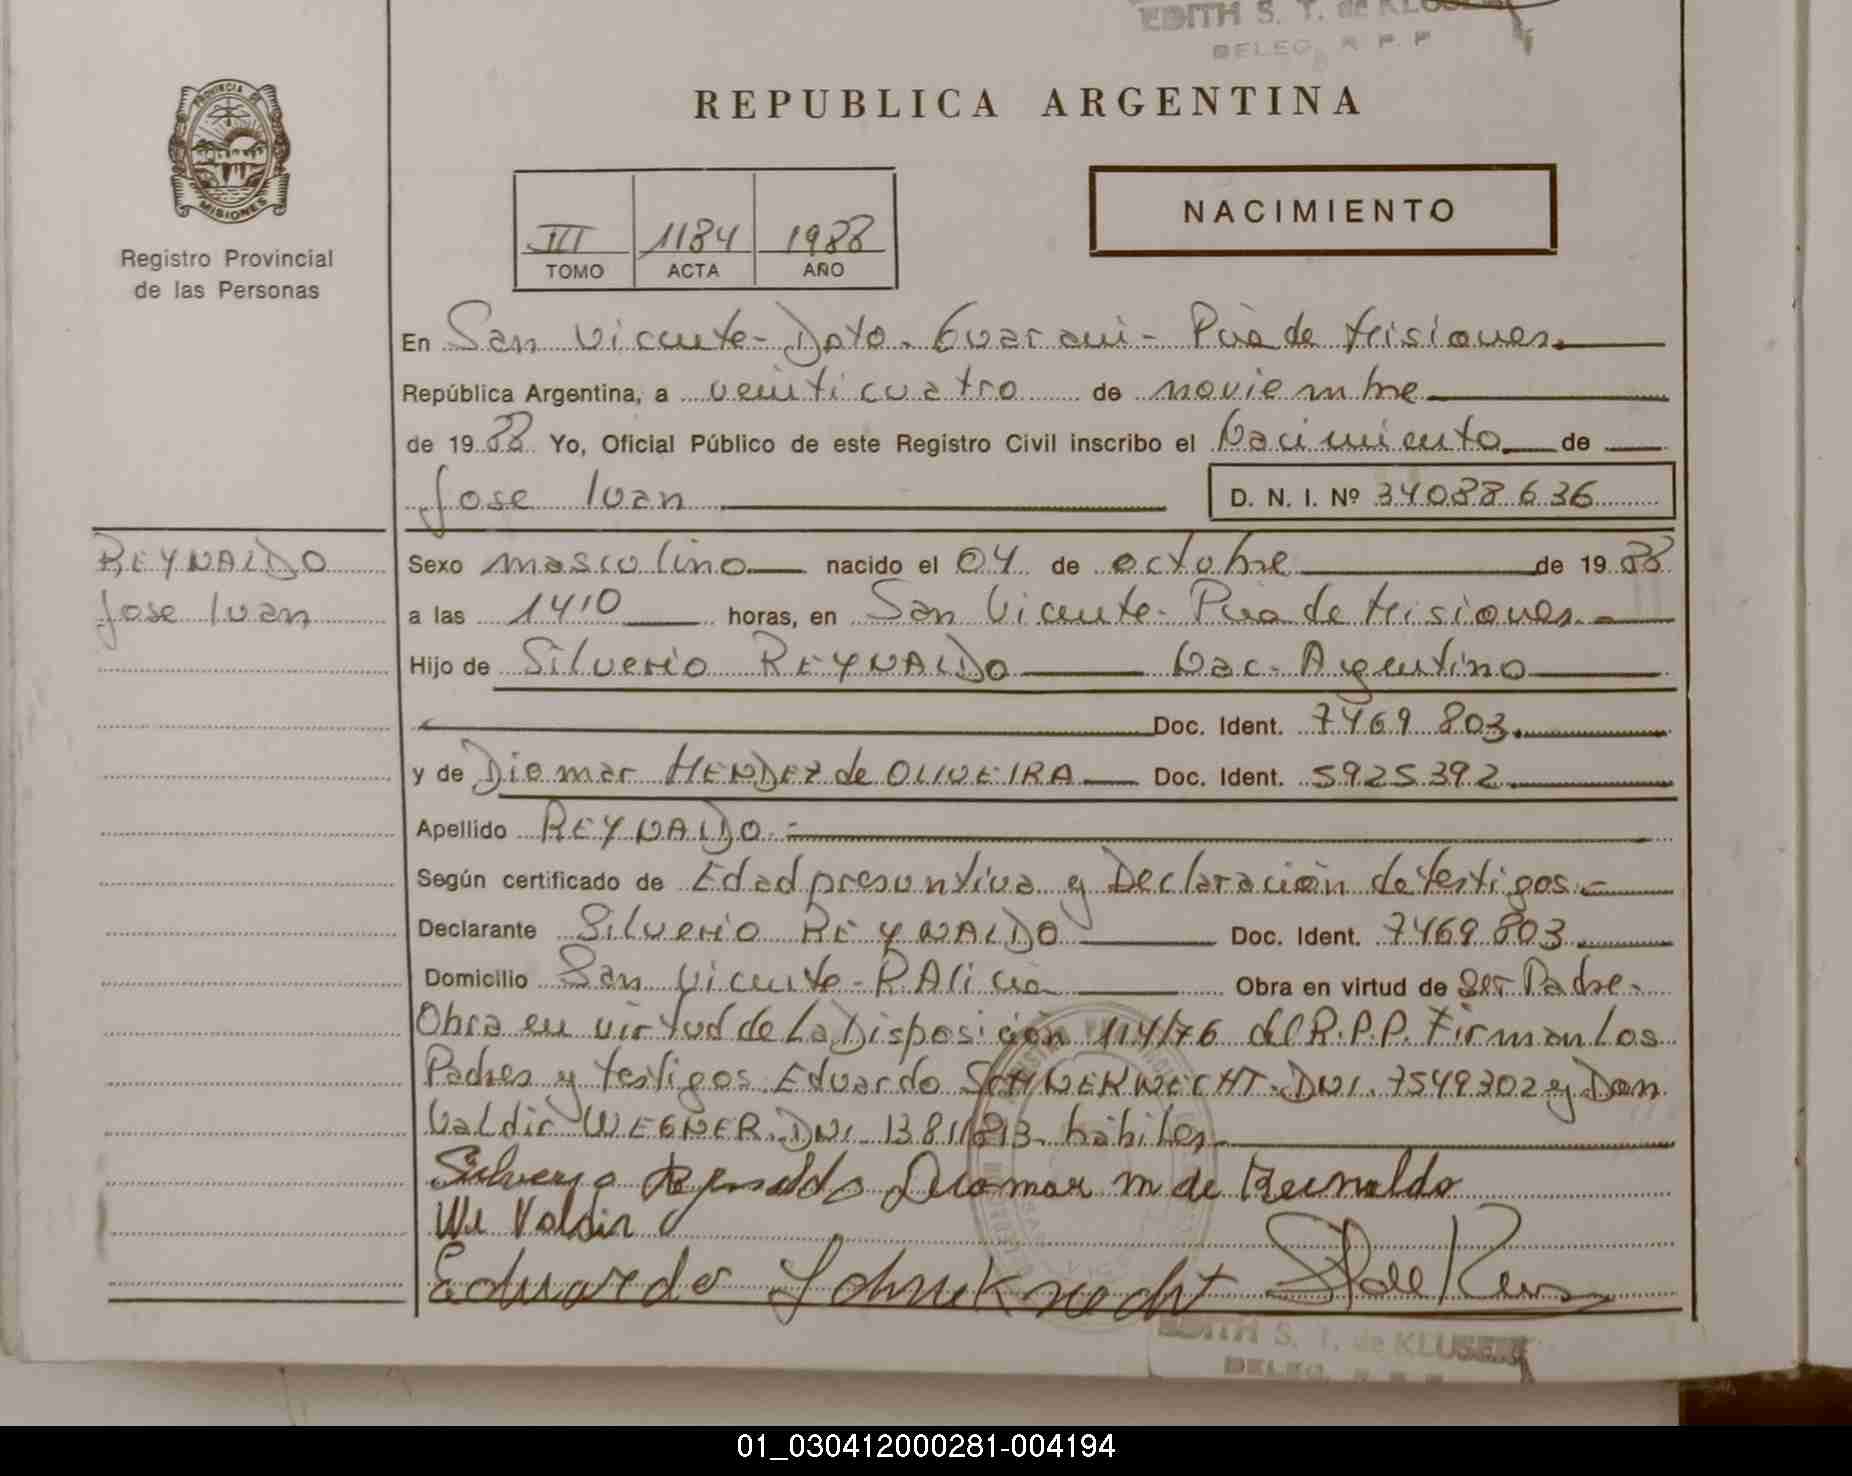 EDITH S. T. de KLUSER
DELEG. R. P. P
REPUBLICA ARGENTINA
PROVINCIA DE
MISIONES
Registro Provincial
de las Personas
III 1184 1988
TOMO ACTA AÑO
NACIMIENTO
En San Vicente - Dpto. Guarani - Pcia de Misiones.
República Argentina, a veinticuatro de noviembre
de 1988 Yo, Oficial Público de este Registro Civil inscribo el Nacimiento de
Jose Ivan D. N. I. Nº 34088636
REYNALDO
Jose Ivan
Sexo masculino nacido el 04 de octubre de 1988
a las 1410 horas, en San Vicente - Pcia de Misiones. -
Hijo de Silverio REYNALDO Nac. Argentino
Doc. Ident. 7469803.
y de Diomar MENDEZ de OLIVEIRA Doc. Ident. 5925392
Apellido REYNALDO. -
Según certificado de Edad presuntiva y Declaración de testigos. -
Declarante Silverio REYNALDO Doc. Ident. 7469803
Domicilio San Vicente - P. Alicia Obra en virtud de Ser Padre. -
Obra en virtud de La Disposición 114/76 del R.P.P. Firman Los
Padres y testigos Eduardo DNI. 7549302 y Don
Valdir WEGNER. DNI. 13811813 hábiles
Silverio Reynaldo Diomar m de Reinaldo
We Valdir
Eduardo Schneknecht
EDITH S. T. de KLUSER
DELEG. R. P. P
01_030412000281-004194